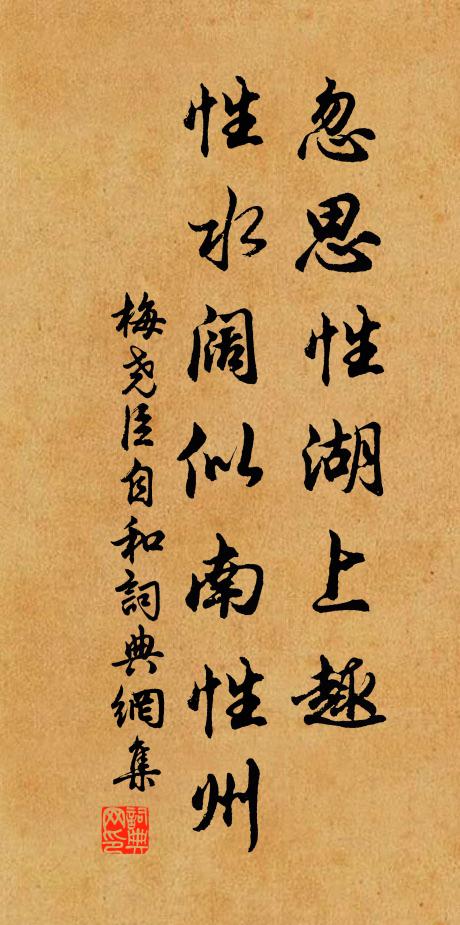 忽思性湖上趣
性水阔似南性州
梅尧臣自和詞典網集
詞典网印